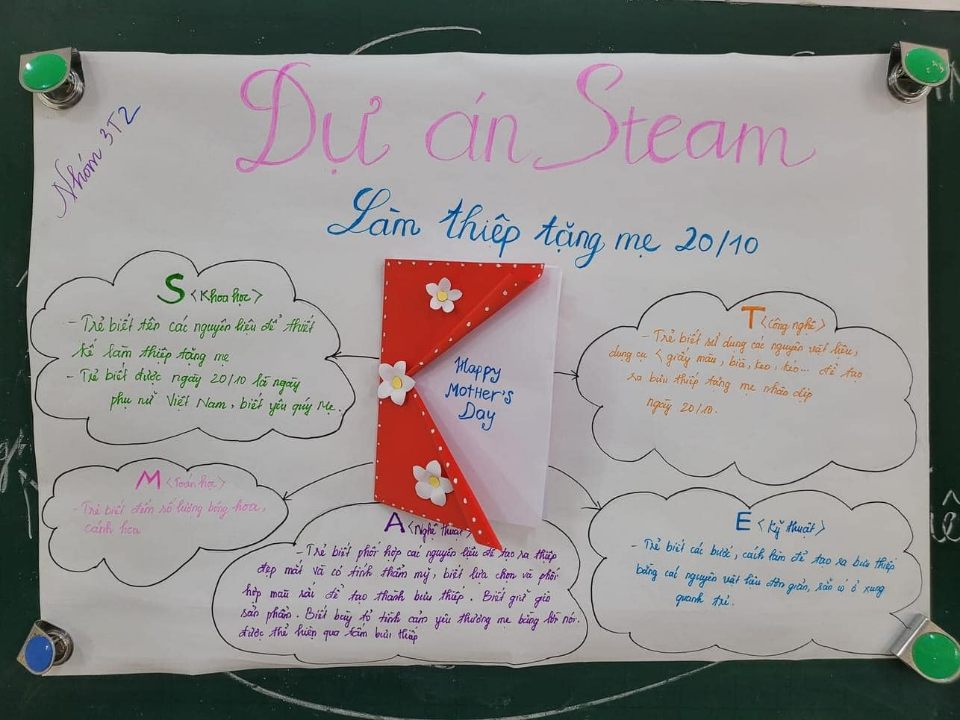 Nhóm 3T2
Dự án Steam
Làm thiệp tặng mẹ 20/10
S <Khoa học>
- Trẻ biết tên các nguyên liệu để thiết
kế làm thiệp tặng mẹ
- Trẻ biết được ngày 20/10 là ngày
phụ nữ Việt Nam, biết yêu quý mẹ.
Happy
Mother's
Day
T <Công nghệ>
- Trẻ biết sử dụng các nguyên vật liệu,
dụng cụ < giấy màu, bìa, keo, kéo... để tạo
ra bưu thiếp tặng mẹ nhân dịp
ngày 20/10.
M <Toán học>
- Trẻ biết đếm số lượng bông hoa,
cánh hoa
A <Nghệ thuật>
- Trẻ biết phối hợp các nguyên liệu để tạo ra thiệp
đẹp mắt và có tính thẩm mỹ, biết lựa chọn và phối
hợp màu sắc để tạo thành bưu thiếp. Biết giữ gìn
sản phẩm. Biết bày tỏ tình cảm yêu thương mẹ bằng lời nói.
được thể hiện qua tấm bưu thiếp
E <Kỹ thuật>
- Trẻ biết các bước, cách làm để tạo ra bưu thiếp
bằng các nguyên vật liệu đơn giản, sẵn có ở xung
quanh trẻ.